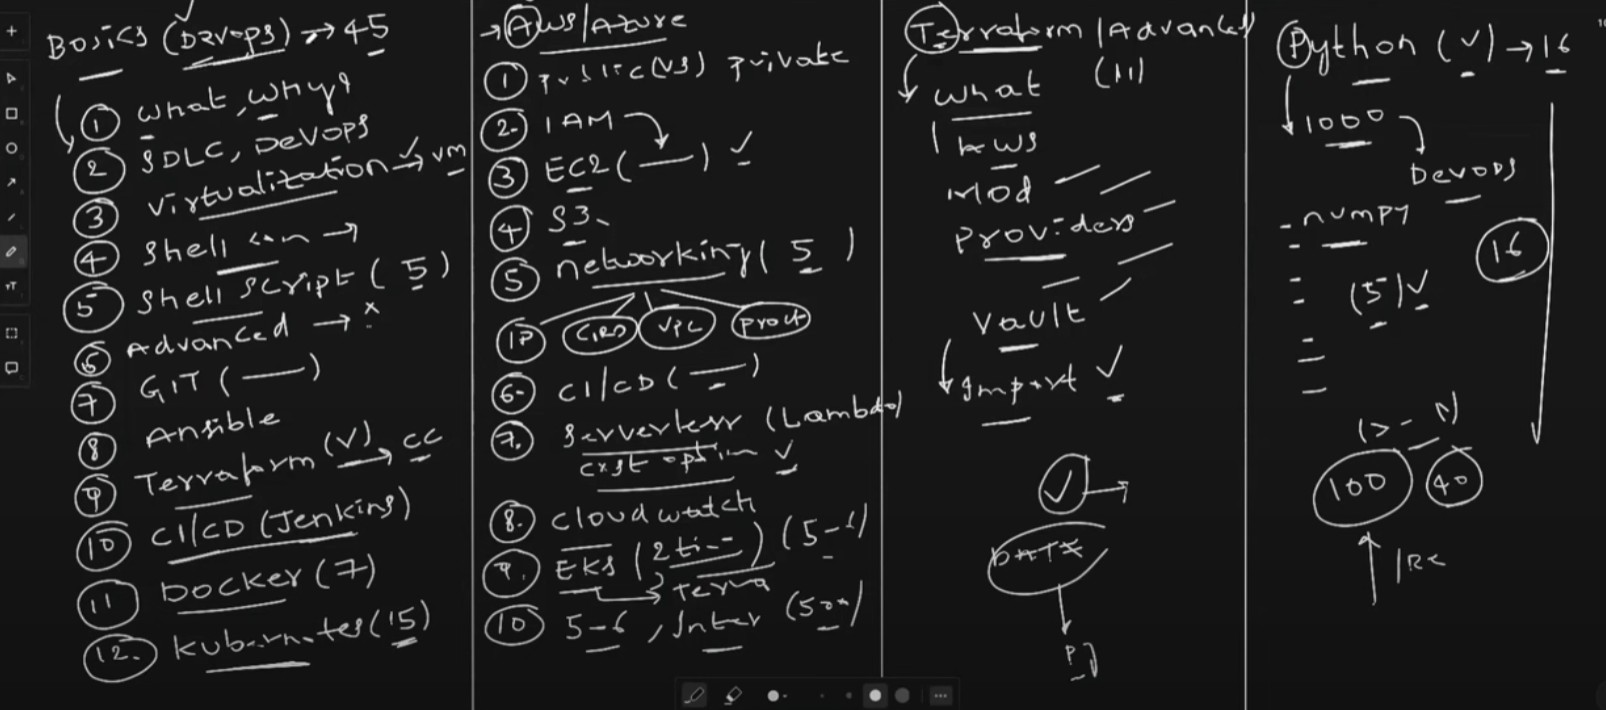 Basics (Devops) → 45
① What, Why?
② SDLC, DeVOPS
③ Virtualization → VM
④ Shell →
⑤ Shell Script (5)
⑥ Advanced → x
⑦ GIT ( — )
⑧ Ansible
⑨ Terraform (✓) → CC
⑩ CI/CD (Jenkins)
⑪ Docker (7)
12. Kubernetes (15)
→ AWS/Azure
① Public (VS) Private
2. IAM
③ EC2 ( — ) ✓
④ S3
⑤ Networking (5)
IP CIRD VPC
6. CI/CD ( — )
7. Serverless (Lambda)
cost optim ✓
8. Cloud watch
9. EKS (2 ti--) (5-1)
→ Terra
⑩ 5-6, Inter
Terraform / Advanced
What (11)
AWS
Mod
Providers
Vault
Import ✓
✓ →
Python (✓) → 16
1000
Devops
- numpy
16
(5) ✓
100 40